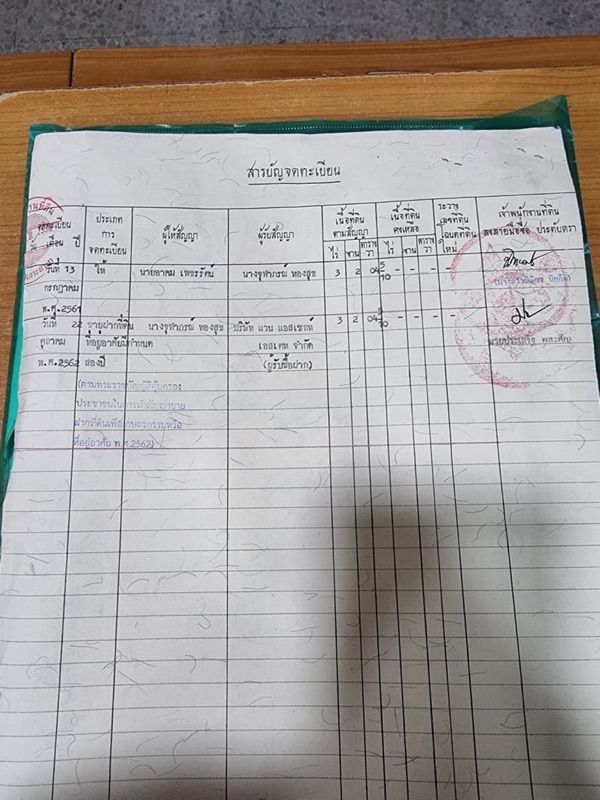 สารบัญจดทะเบียน
จดทะเบียน
วัน เดือน ปี
ประเภท
การ
จดทะเบียน
ผู้ให้สัญญา
ผู้รับสัญญา
เนื้อที่ดิน
ตามสัญญา
ไร่ งาน ตาราง
วา
เนื้อที่ดิน
คงเหลือ
ไร่ งาน ตาราง
วา
ระวาง
เลขที่ดิน
โฉนดที่ดิน
ใหม่
เจ้าพนักงานที่ดิน
ลงลายมือชื่อ ประทับตรา
วันที่ 13 ให้ นายอาคม เพชรรัตน์ นางจุฬาภรณ์ ทองสุข 3 2 04 5/10 - - - -
กรกฎาคม
พ.ศ.2561
วันที่ 22 ขายฝากที่ดิน นางจุฬาภรณ์ ทองสุข บริษัท แวน แอสเซทส์ 3 2 04 5/10 - - - -
ตุลาคม ที่อยู่อาศัยมีกำหนด เอสเตท จำกัด
พ.ศ.2562 สองปี (ผู้รับซื้อฝาก)
(ตามพระราชบัญญัติคุ้มครอง
ประชาชนในการทำสัญญาขาย
ฝากที่ดินเพื่อเกษตรกรรมหรือ
ที่อยู่อาศัย พ.ศ.2562)